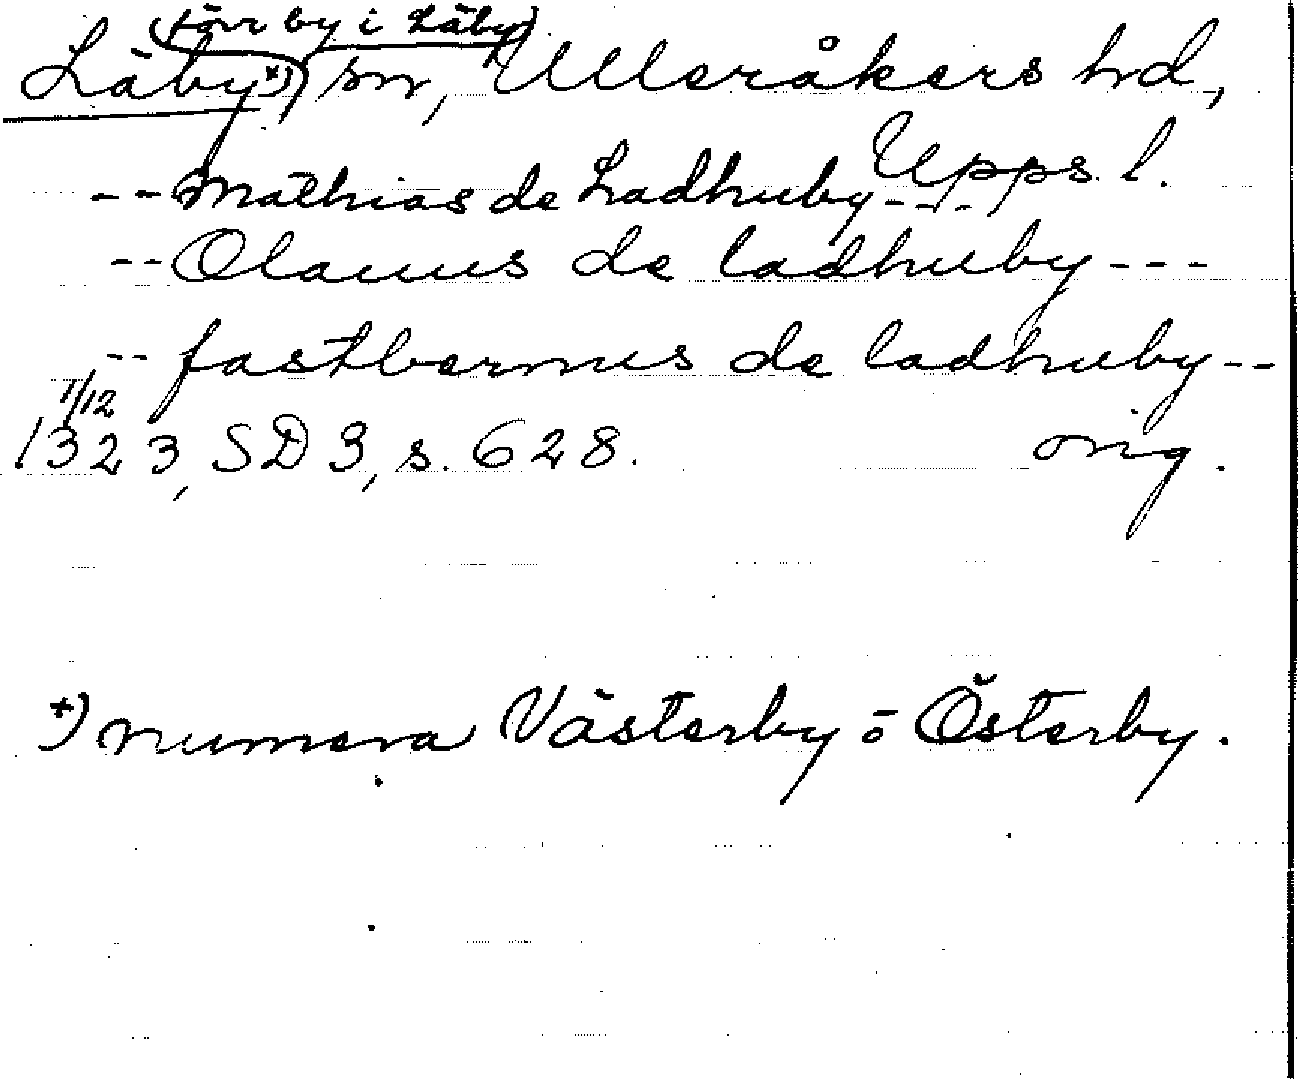 (förr by i Läby)
Läby*) sn, Ulleråkers hd,
Upps. l.
-- Mathias de Ladhuby ---
-- Olauus de ladhuby ---
-- fastbernus de ladhuby --
1/12
1323, SD 3, s. 628. orig.
*) numera Västerby o Österby.